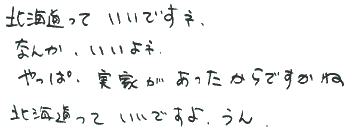 北海道って いいですネ.
なんか、いいよネ.
やっぱ. 実家が あったからですかね
北海道って いいですよ、うん.